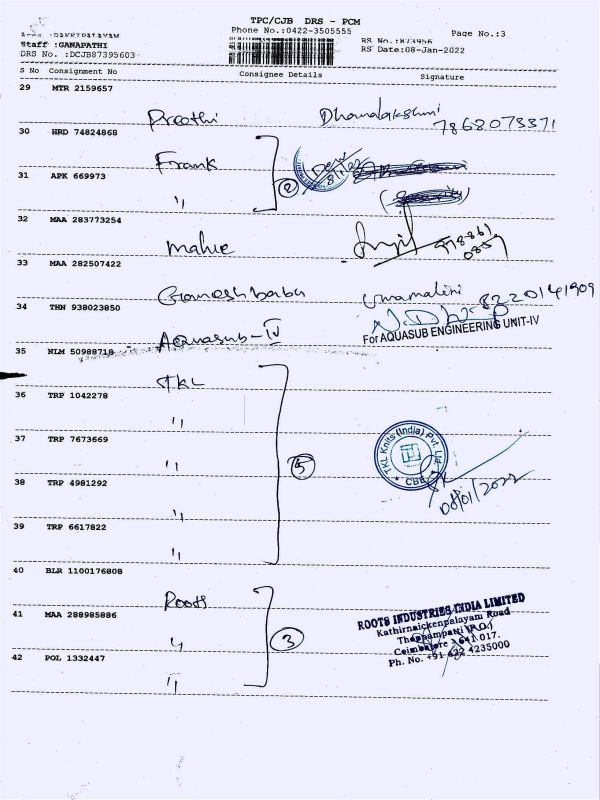 TPC/CJB DRS - PCM
Phone No.:0422-3505555
Page No.:3
Staff :GANAPATHI
DRS No. :DCJB87395603
RS No.:873956
RS Date:08-Jan-2022
S No Consignment No Consignee Details Signature
29 MTR 2159657
Preethi Dhanalakshmi
7868073371
30 HRD 74824868
Frank
31 APK 669973
〃 2
(Security)
32 MAA 283773254
33 MAA 282507422
Ganeshbabu Umamalini 8220141909
34 THN 938023850
Aquasub-IV
For AQUASUB ENGINEERING UNIT-IV
35 NLM 50988718
TKL
36 TRP 1042278
〃
37 TRP 7673669
〃 5
TKL Knits (India) Pvt. Ltd.
CBE
08/01/2022
38 TRP 4981292
〃
39 TRP 6617822
〃
40 BLR 1100176808
Roots
41 MAA 288985886
〃 3
ROOTS INDUSTRIES INDIA LIMITED
Kathirnaickenpalayam Road
Thoppampatti (P.O.)
Coimbatore - 641 017.
Ph. No. +91 422 4235000
42 POL 1332447
〃